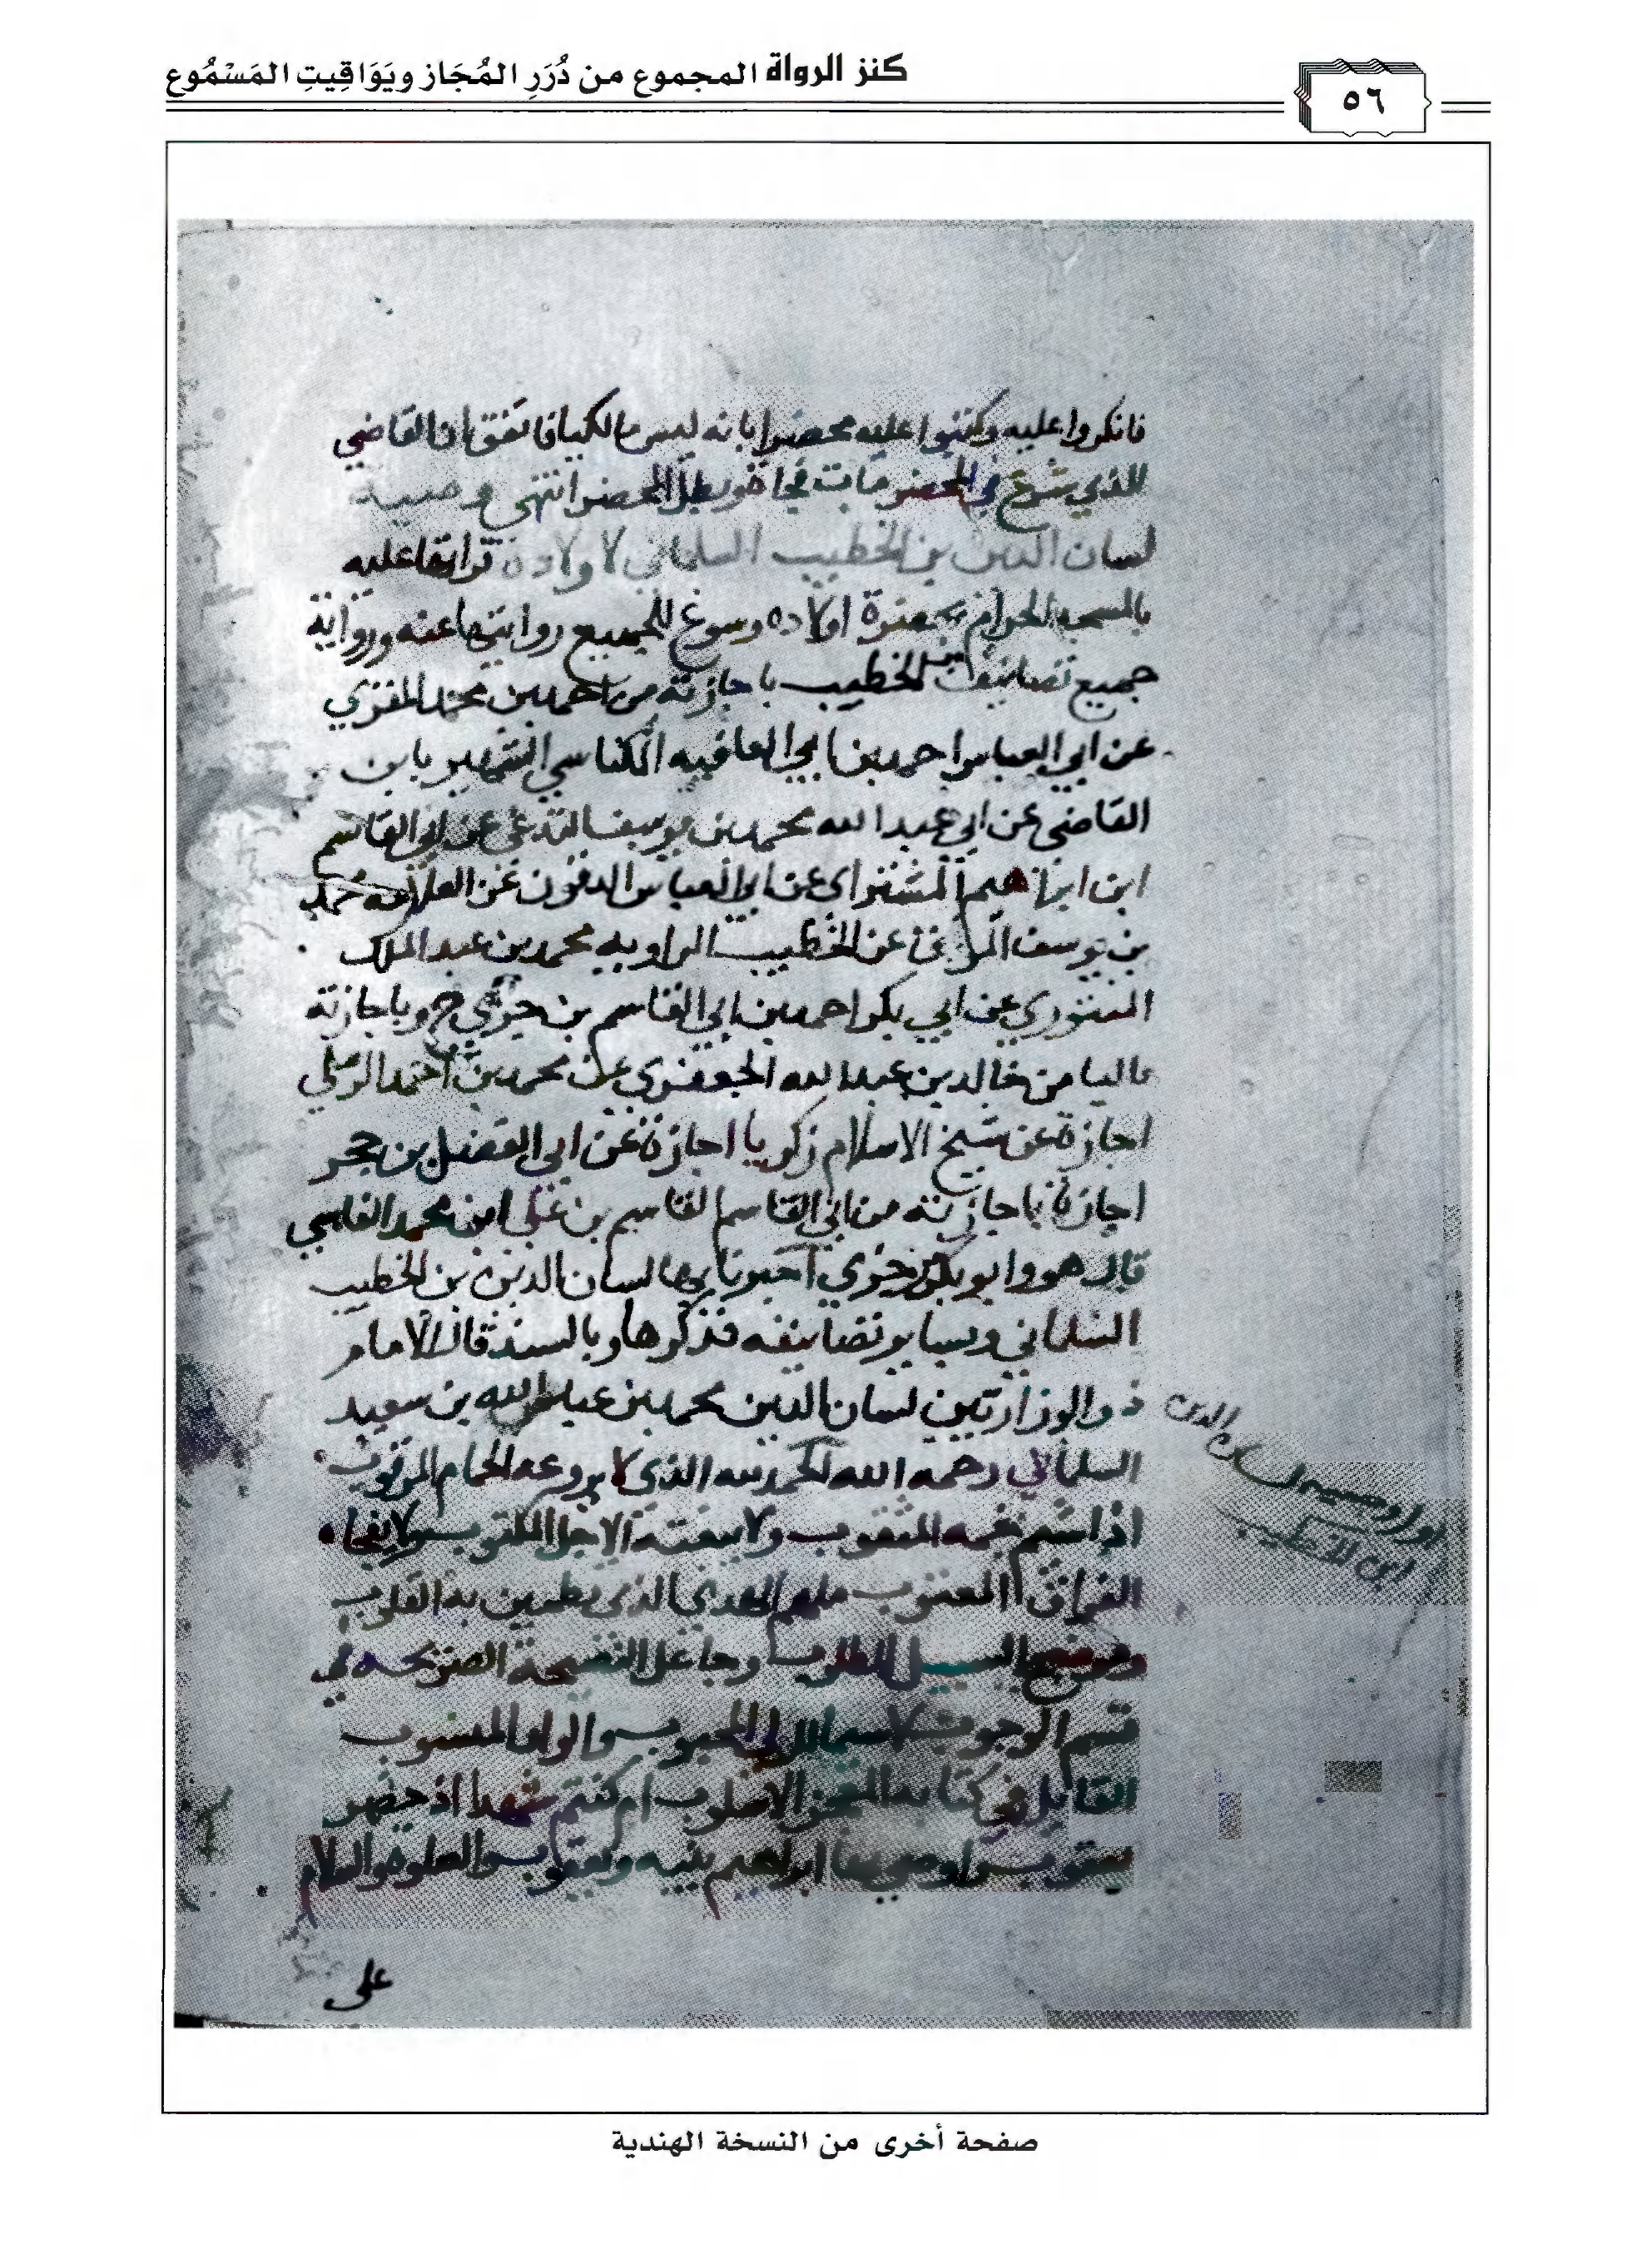 كنز الرواة المجموع من دُرَرِ المُجَاز ويَوَاقِيتِ المَسْمُوع
٥٦
فانكروا عليه وكتبوا عليه محضرا بانه ليس بالكيا فاتفق ان القاضي
الذي شرع في المحضر مات فجأة وبطل المحضر انتهى وصية
لسان الدين بن الخطيب السلماني لاولاده قراتها عليه
بالمسجد الحرام بحضرة اولاده وسوغ للجميع روايتها عنه ورواية
جميع تصانيف ابن الخطيب باجازته من احمد بن محمد المقري
عن ابي العباس احمد بن ابي العافيه المكناسي الشهير بابن
القاضي عن ابي عبد الله محمد بن يوسف عن ابي القاسم
ابن ابراهيم عن ابي العباس الدقون عن العلامه محمد
بن يوسف المواق عن الخطيب الراويه محمد بن عبد الملك
المنتوري عن ابي بكر احمد بن ابي القاسم بن جزي ح وباجازته
عاليا من خالد بن عبد الله الجعفري عن محمد بن احمد الرملي
اجازة عن شيخ الاسلام زكريا اجازة عن ابي الفضل بن حجر
اجازة باجازته من ابي القاسم القاسم بن علي ابن محمد الفاسي
قال هو وابو بكر بن جزي اخبرنا بها لسان الدين بن الخطيب
السلماني وبساير تصانيفه فذكرها وبالسند قال الامام
ذو الوزارتين لسان الدين محمد بن عبد الله بن سعيد
السلماني رحمه الله الحمد لله الذي لا يروعه الحمام المرقوب
اذا شيم نجمه المثقوب ولا يبغته الاجل المكتوب ولا يفجاه
الفراق المعتوب ملهم الهدى الذي تطمين به القلوب
وموضح السبيل المطلوب وجاعل النصيحة الصريحه في
قسم الوجوب لا سيما للولي المحبوب والولد المنسوب
القايل في كتابه المعجز الاسلوب ام كنتم شهدا اذ حضر
يعقوب ووصى بها ابراهيم بنيه ويعقوب والصلوة والسلام
على
اول وصيه لسان الدين
ابن الخطيب
صفحة أخرى من النسخة الهندية